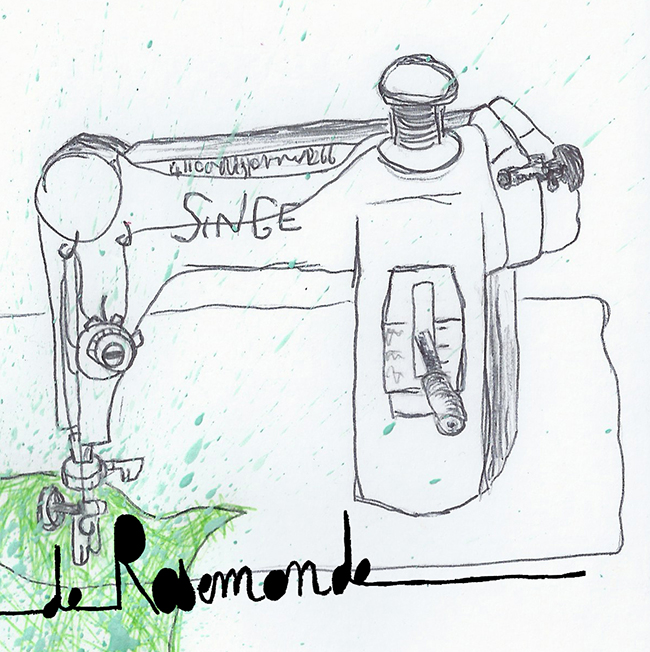 SINGE
de Rosemonde